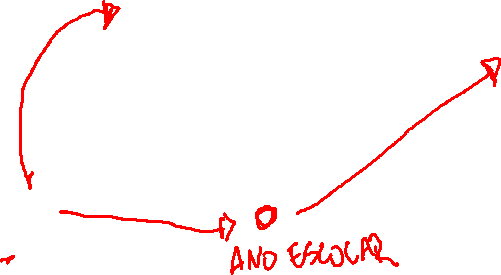 ANO ESCOLAR